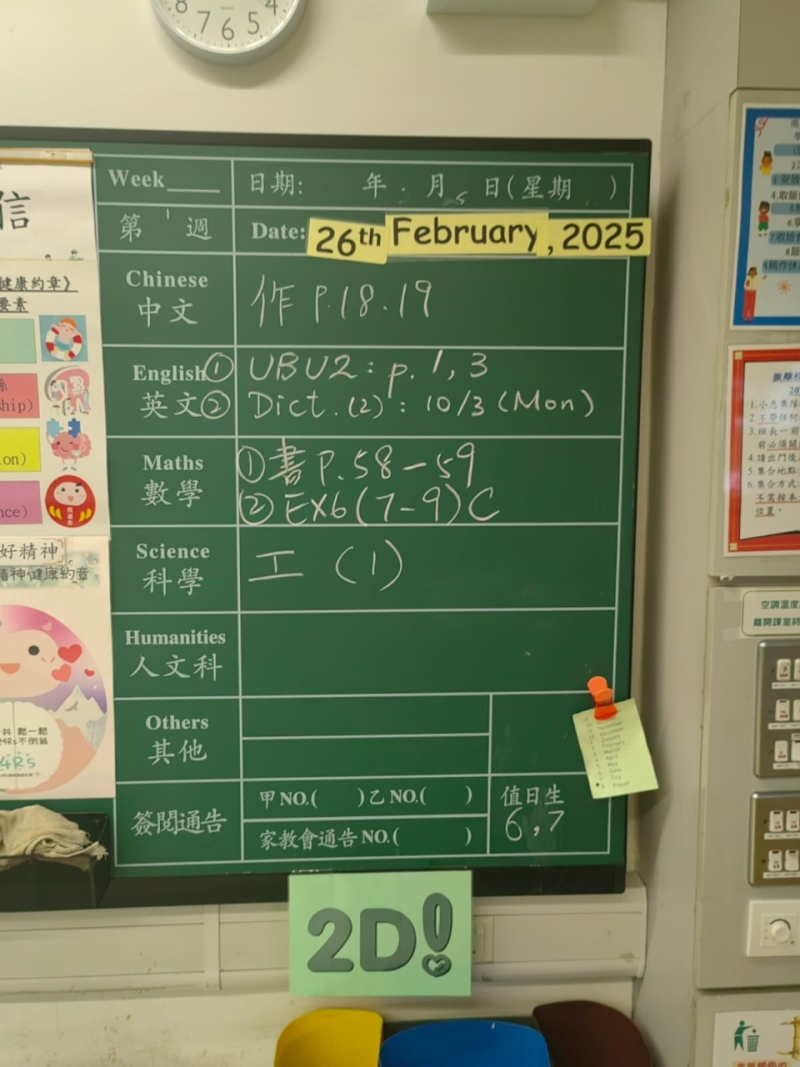 8 7 6 5 4
Week____ 日期: 年 月 日(星期 )
第 週 Date: 26th February, 2025
Chinese 中文 作 P.18.19
English 英文 ① UBU2: p. 1, 3
② Dict. (2): 10/3 (Mon)
Maths 數學 ① 書 P.58-59
② EX6 (7-9) C
Science 科學 工 (1)
Humanities 人文科
Others 其他
簽閱通告 甲NO.( )乙NO.( )
家教會通告NO.( )
值日生
6,7
2D!
信
健康約章》
要素
ship)
on)
nce)
好精神
精神健康約章
鬆一鬆
4Rs
空調溫度
離開課室時